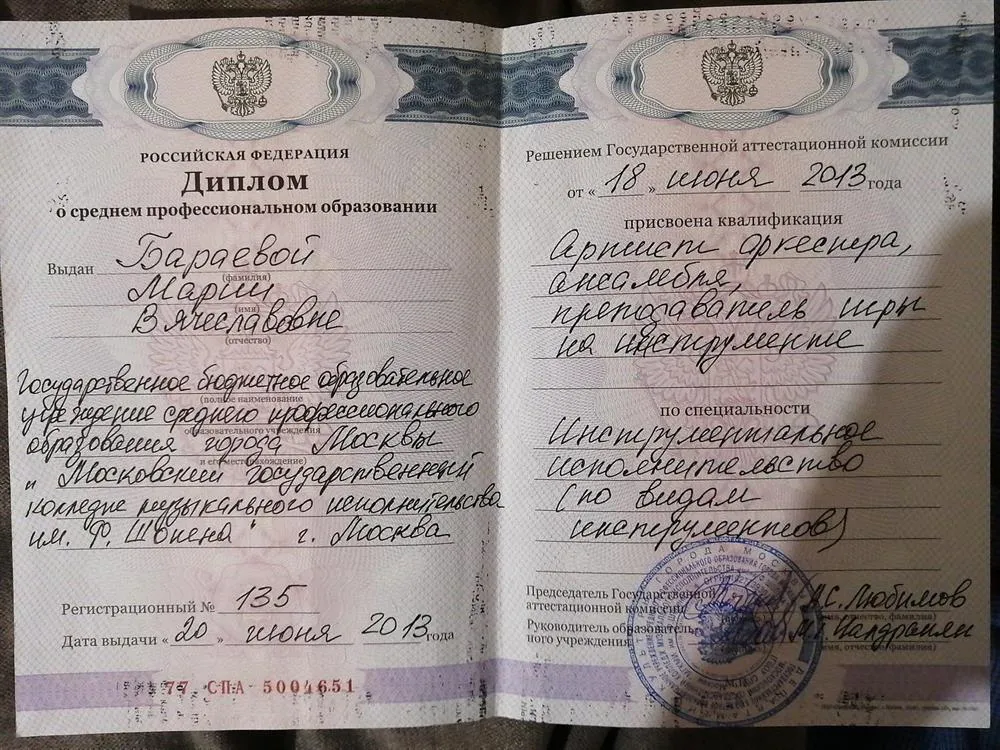 РОССИЙСКАЯ ФЕДЕРАЦИЯ
Диплом
о среднем профессиональном образовании
Выдан Бараевой
(фамилия)
Марии
(имя)
Вячеславовне
(отчество)
Государственное бюджетное образовательное
(полное наименование
учреждение среднего профессионального
образовательного учреждения
образования города Москвы
и его местонахождение)
"Московский государственный
колледж музыкального исполнительства
им. Ф. Шопена" г. Москва
Регистрационный № 135
Дата выдачи «20» июня 2013 года
77 СПА 5004651
Решением Государственной аттестационной комиссии
от «18» июня 2013 года
присвоена квалификация
Артист оркестра,
ансамбля,
преподаватель игры
на инструменте
по специальности
Инструментальное
исполнительство
(по видам
инструментов)
Председатель Государственной
аттестационной комиссии
С. Любимов
Руководитель образователь-
ного учреждения
отчество, фамилия)